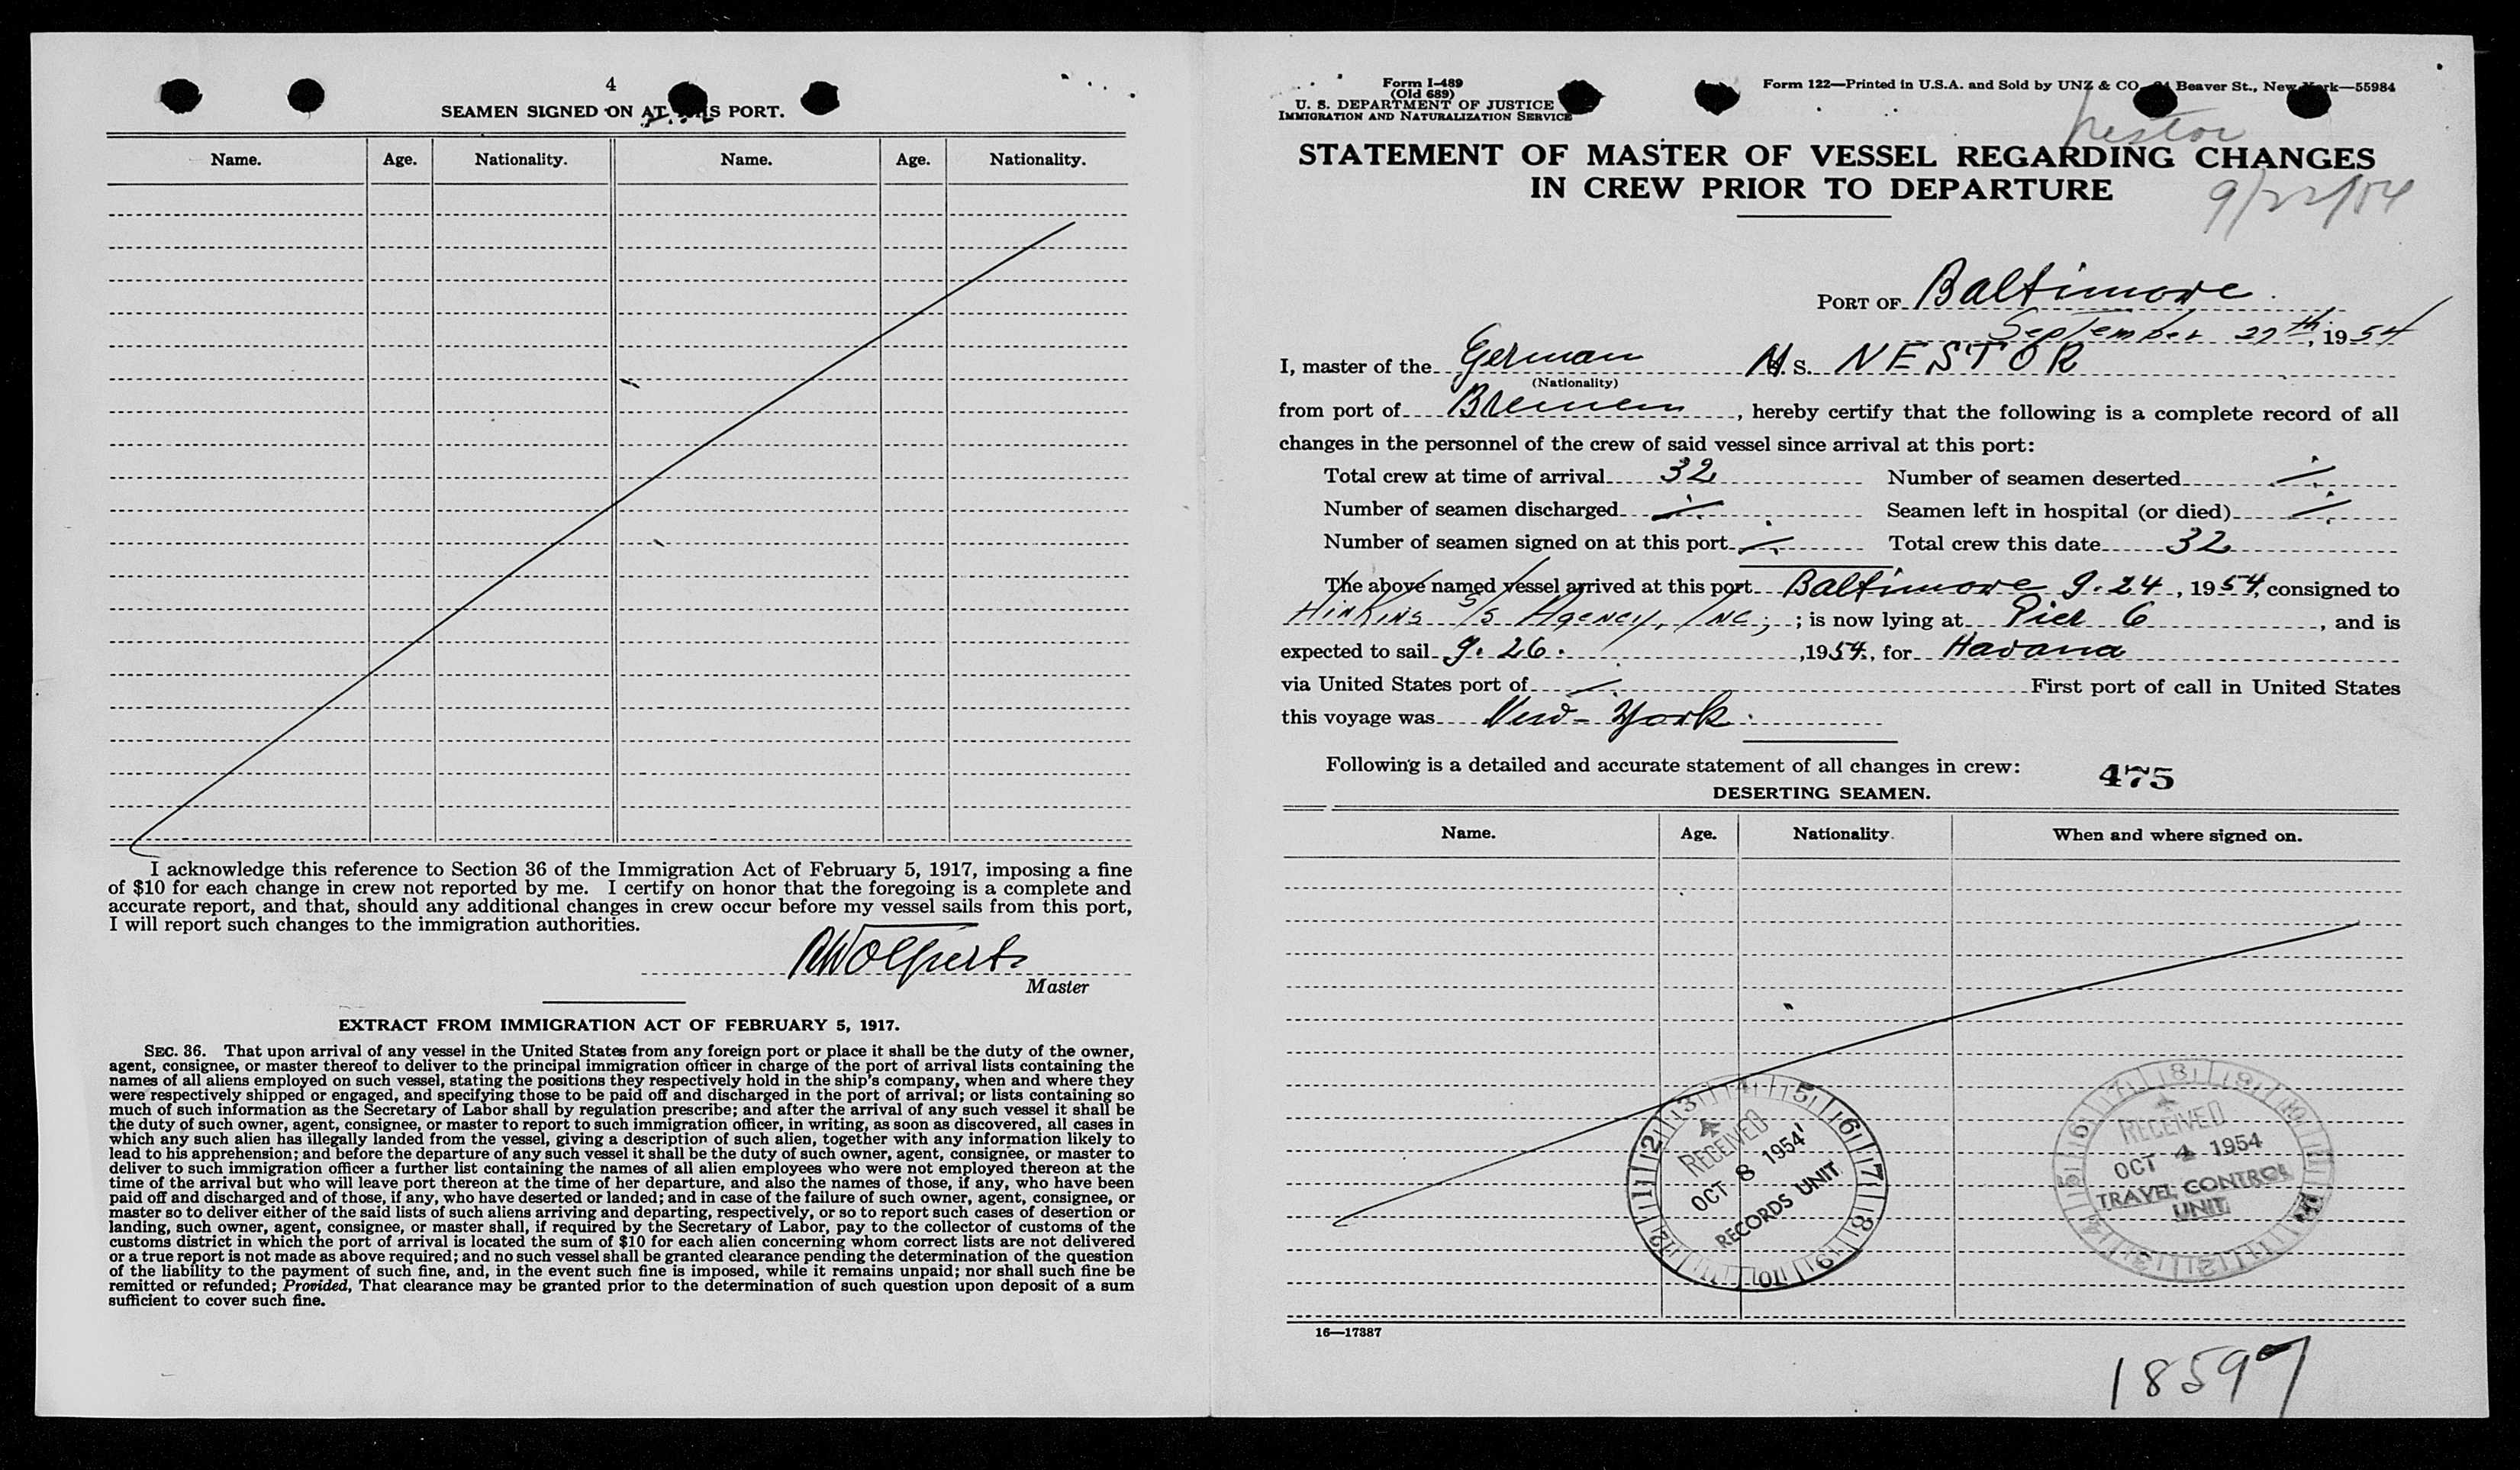 4
SEAMEN SIGNED ON AT S PORT.
Name. Age. Nationality. Name. Age. Nationality.
I acknowledge this reference to Section 36 of the Immigration Act of February 5, 1917, imposing a fine
of $10 for each change in crew not reported by me. I certify on honor that the foregoing is a complete and
accurate report, and that, should any additional changes in crew occur before my vessel sails from this port,
I will report such changes to the immigration authorities.
Master
EXTRACT FROM IMMIGRATION ACT OF FEBRUARY 5, 1917.
SEC. 36. That upon arrival of any vessel in the United States from any foreign port or place it shall be the duty of the owner,
agent, consignee, or master thereof to deliver to the principal immigration officer in charge of the port of arrival lists containing the
names of all aliens employed on such vessel, stating the positions they respectively hold in the ship's company, when and where they
were respectively shipped or engaged, and specifying those to be paid off and discharged in the port of arrival; or lists containing so
much of such information as the Secretary of Labor shall by regulation prescribe; and after the arrival of any such vessel it shall be
the duty of such owner, agent, consignee, or master to report to such immigration officer, in writing, as soon as discovered, all cases in
which any such alien has illegally landed from the vessel, giving a description of such alien, together with any information likely to
lead to his apprehension; and before the departure of any such vessel it shall be the duty of such owner, agent, consignee, or master to
deliver to such immigration officer a further list containing the names of all alien employees who were not employed thereon at the
time of the arrival but who will leave port thereon at the time of her departure, and also the names of those, if any, who have been
paid off and discharged and of those, if any, who have deserted or landed; and in case of the failure of such owner, agent, consignee, or
master so to deliver either of the said lists of such aliens arriving and departing, respectively, or so to report such cases of desertion or
landing, such owner, agent, consignee, or master shall, if required by the Secretary of Labor, pay to the collector of customs of the
customs district in which the port of arrival is located the sum of $10 for each alien concerning whom correct lists are not delivered
or a true report is not made as above required; and no such vessel shall be granted clearance pending the determination of the question
of the liability to the payment of such fine, and, in the event such fine is imposed, while it remains unpaid; nor shall such fine be
remitted or refunded; Provided, That clearance may be granted prior to the determination of such question upon deposit of a sum
sufficient to cover such fine.
Form I-489
(Old 689)
U. S. DEPARTMENT OF JUSTICE
IMMIGRATION AND NATURALIZATION SERVICE
Form 122—Printed in U.S.A. and Sold by UNZ & CO. Beaver St., New York—55984
Nestor
STATEMENT OF MASTER OF VESSEL REGARDING CHANGES
IN CREW PRIOR TO DEPARTURE
9/22/54
PORT OF Baltimore
September 27th, 1954
I, master of the German M. S. NESTOR
(Nationality)
from port of Bremen, hereby certify that the following is a complete record of all
changes in the personnel of the crew of said vessel since arrival at this port:
Total crew at time of arrival 32 Number of seamen deserted ./.
Number of seamen discharged ./. Seamen left in hospital (or died) ./.
Number of seamen signed on at this port ./. Total crew this date 32
The above named vessel arrived at this port Baltimore 9.24, 1954, consigned to
Hinkins S/S Agency, Inc; ; is now lying at Pier 6, and is
expected to sail 9.26., 1954, for Havana
via United States port of ./. First port of call in United States
this voyage was New-York.
Following is a detailed and accurate statement of all changes in crew: 475
DESERTING SEAMEN.
Name. Age. Nationality. When and where signed on.
RECEIVED
OCT 8 1954
RECORDS UNIT
RECEIVED
OCT 4 1954
TRAVEL CONTROL
UNIT
16—17387
18597